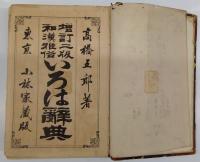 高橋五郎著
増訂二版
和漢雅俗
いろは辞典
東京 小林家蔵版